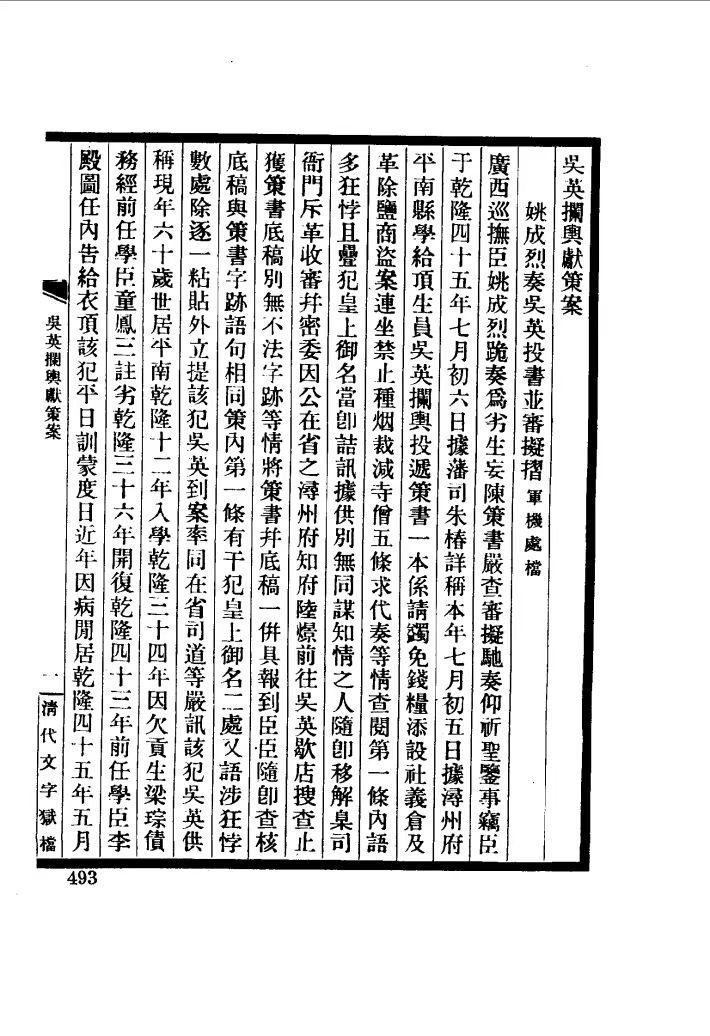 吳英攔輿獻策案
姚成烈奏吳英投書並審擬摺 軍機處檔
廣西巡撫臣姚成烈跪奏爲劣生妄陳策書嚴查審擬馳奏仰祈聖鑒事竊臣
于乾隆四十五年七月初六日據藩司朱椿詳稱本年七月初五日據潯州府
平南縣學給頂生員吳英攔輿投遞策書一本係請蠲免錢糧添設社義倉及
革除鹽商盜案連坐禁止種烟裁減寺僧五條求代奏等情查閱第一條內語
多狂悖且疊犯皇上御名當卽詰訊據供別無同謀知情之人隨卽移解臬司
衙門斥革收審幷密委因公在省之潯州府知府陸燝前往吳英歇店搜查止
獲策書底稿別無不法字跡等情將策書幷底稿一倂具報到臣臣隨卽查核
底稿與策書字跡語句相同策內第一條有干犯皇上御名二處又語涉狂悖
數處除逐一粘貼外立提該犯吳英到案率同在省司道等嚴訊該犯吳英供
稱現年六十歲世居平南乾隆十二年入學乾隆三十四年因欠貢生梁琮債
務經前任學臣童鳳三註劣乾隆三十六年開復乾隆四十三年前任學臣李
殿圖任內告給衣頂該犯平日訓蒙度日近年因病閒居乾隆四十五年五月
吳英攔輿獻策案
一
清代文字獄檔
493